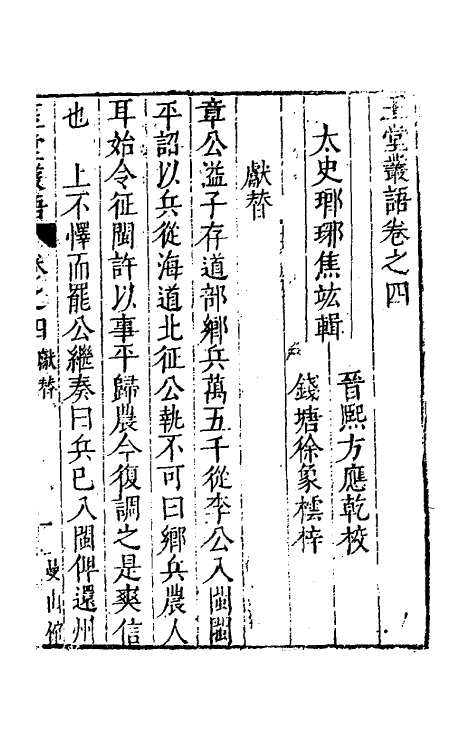 玉堂叢語卷之四
晉熙方應乾校
太史瑯琊焦竑輯
錢塘徐象橒梓
獻替
章公溢子存道部鄉兵萬五千從李公入閩閩
平詔以兵從海道北征公執不可曰鄉兵農人
耳始令征閩許以事平歸農今復調之是爽信
也　上不懌而罷公繼奏曰兵已入閩俾還州
玉堂叢語　卷之四獻替　一　曼山館